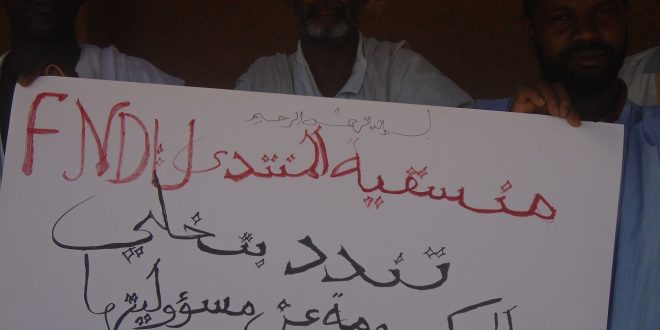 بسم الله الرحمن الرحيم
منسقية المنتدى FNDU
تندد بتخلي
الحكومة عن مسؤوليتها